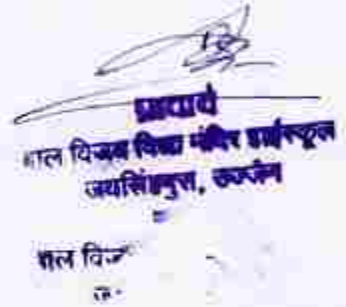 प्राचार्य
बाल विजय विद्या मंदिर हाईस्कूल
जयसिंहपुरा, उज्जैन
बाल विज